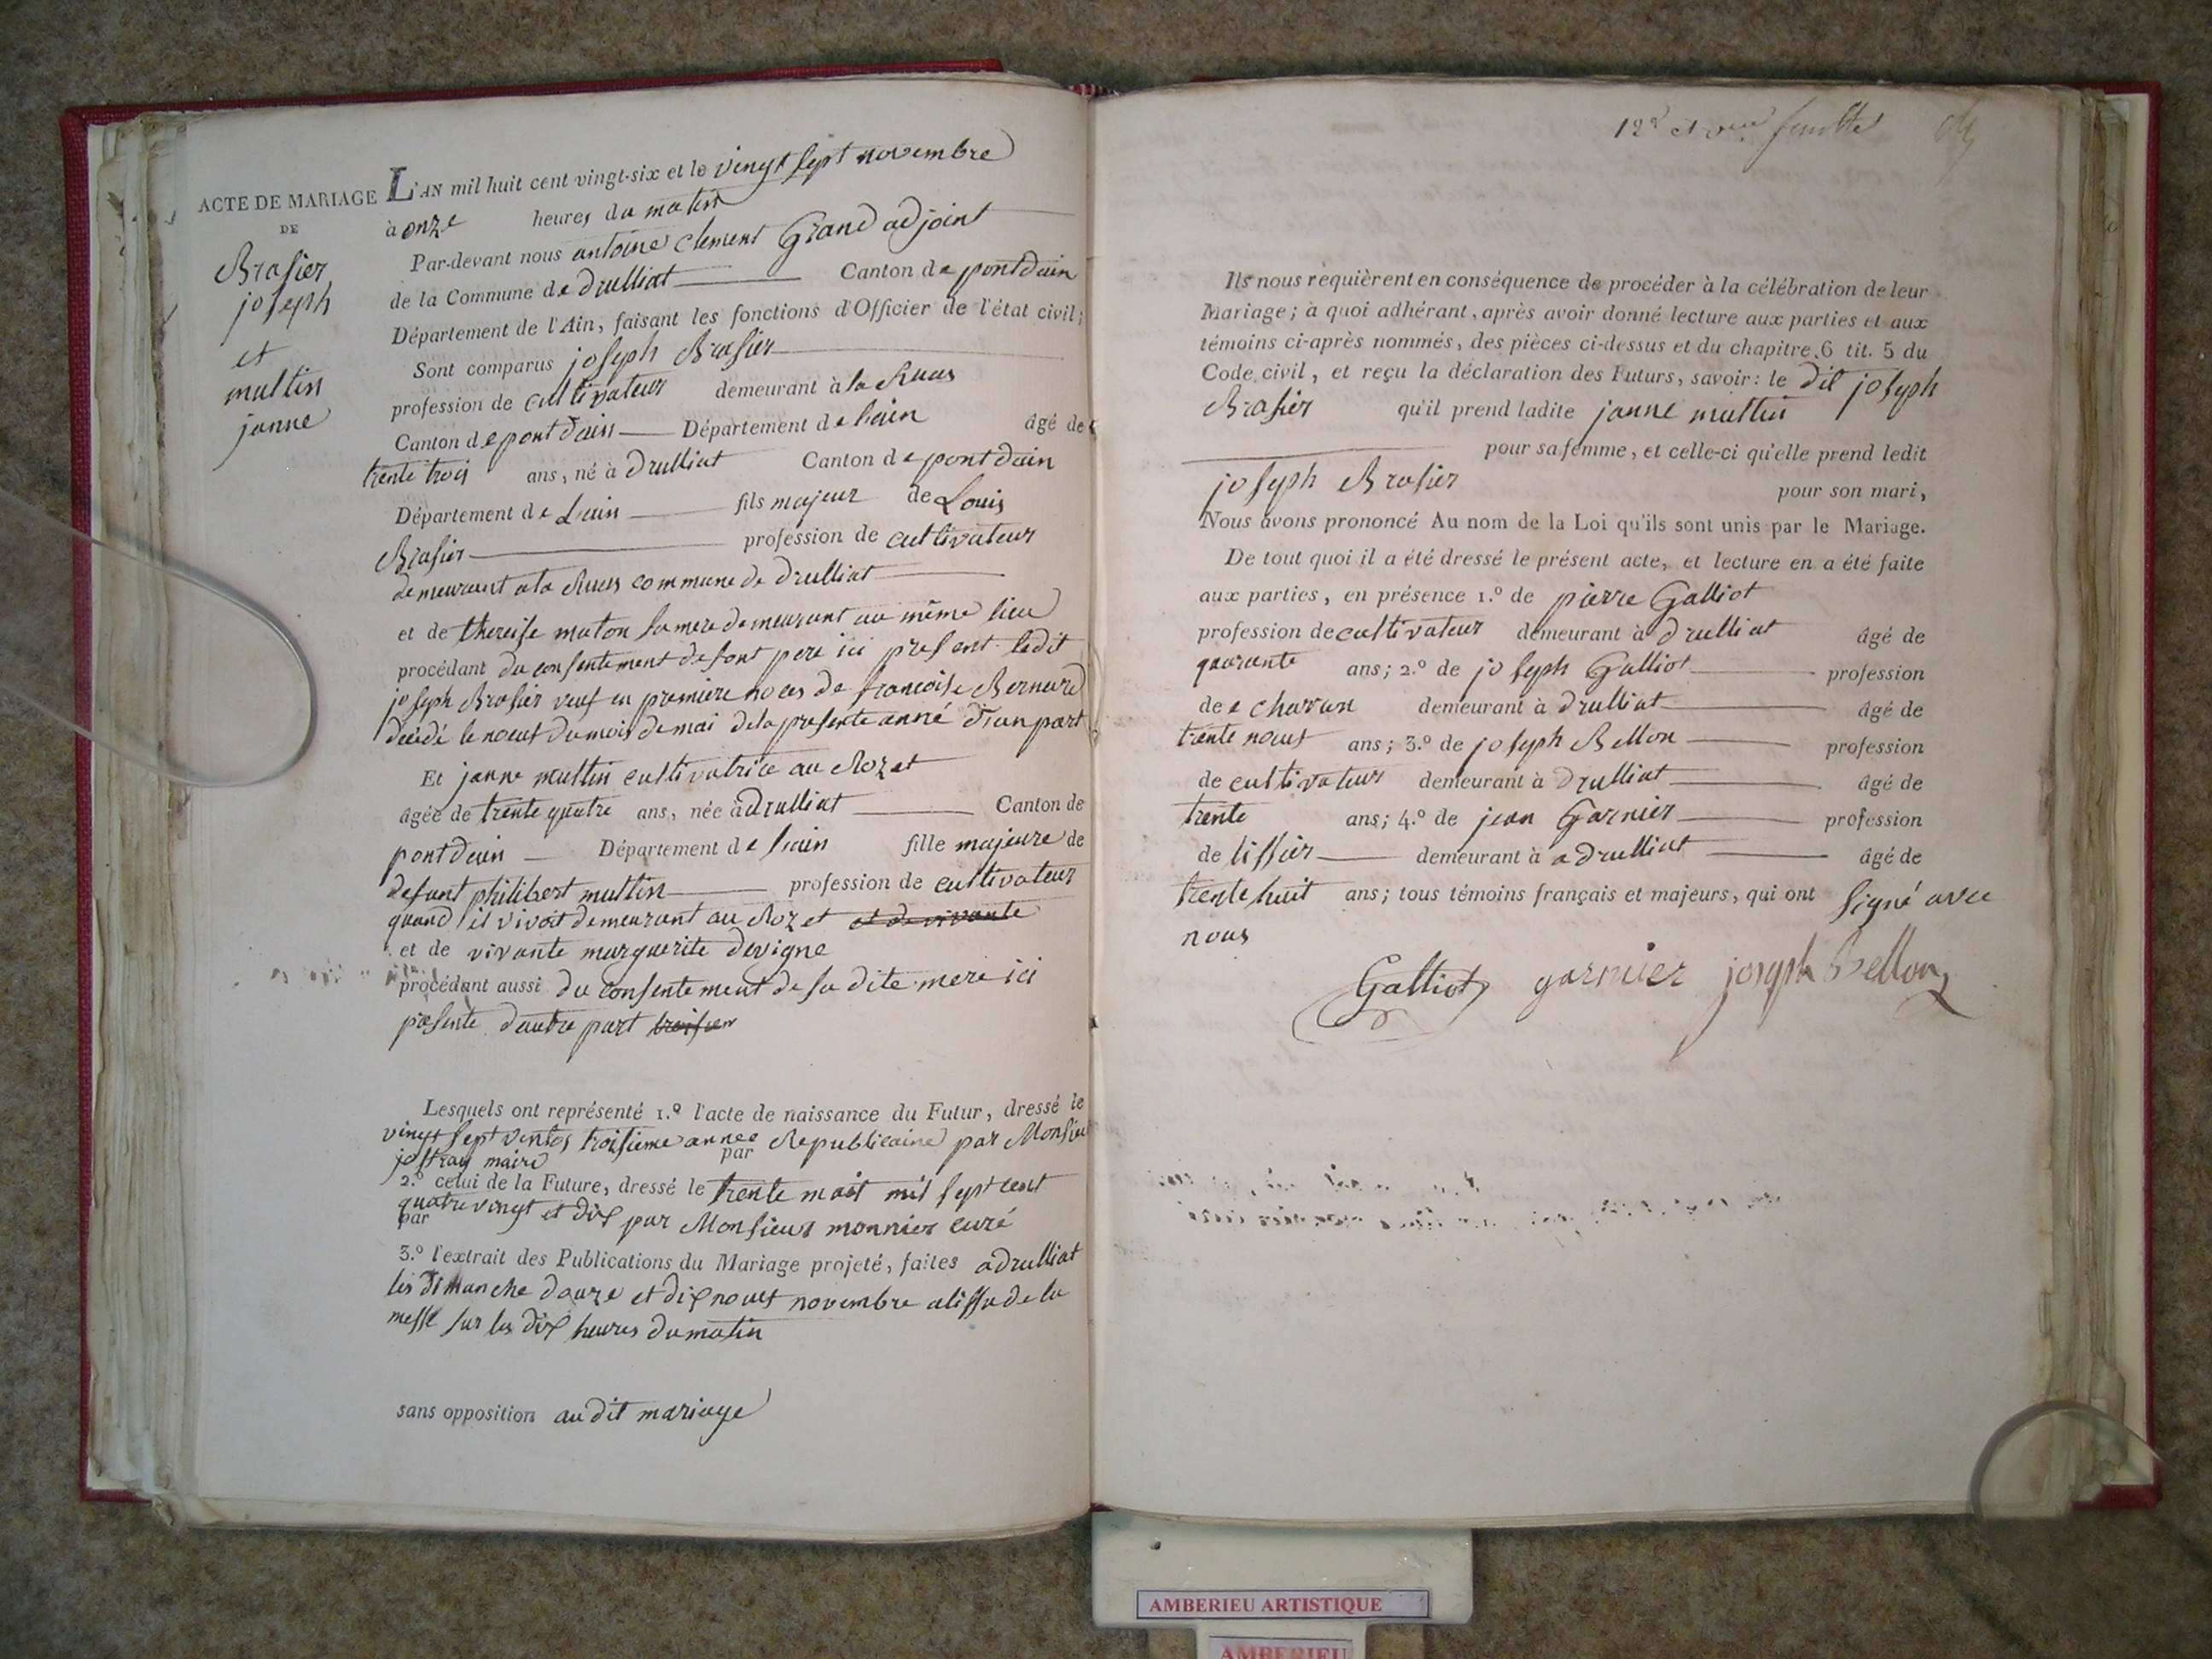 ACTE DE MARIAGE
DE
Brasier
joseph
et
multin
janne
L'AN mil huit cent vingt-six et le vingt sept novembre
à onze heures du matin
Par-devant nous antoine clement Grand adjoint
de la Commune de drulliat Canton de pontdain
Département de l'Ain, faisant les fonctions d'Officier de l'état civil;
Sont comparus joseph Brasier
profession de cultivateur demeurant à la Ruas
Canton de pont dain Département de lain âgé de
trente trois ans, né à drulliat Canton de pont dain
Département de Lain fils majeur de Louis
Brasier profession de cultivateur
demeurant a la commune de drulliat
et de thereise maton sa mere demeurant au même lieu
procédant du consentement de sont pere ici present ledit
joseph Brasier veuf en premiere noces de francoise Bernard
décédé le noeuf du mois de mai de la presente anné d'un part
Et janne multin cultivatrice au Rozet
âgée de trente quatre ans, née à drulliat Canton de
pontdain Département de lain fille majeure de
defunt philibert multin profession de cultivateur
quand il vivoit demeurant au Rozet et de vivante
et de vivante marguerite devigne
procédant aussi du consentement de sa dite mere ici
presente d'autre part
Lesquels ont représenté 1.º l'acte de naissance du Futur, dressé le
vingt sept ventos troisieme année Republicaine par Monsieu
par
maire
2.º celui de la Future, dressé le trente mil sept cent
quatre vingt et dix par Monsieur monnier curé
par
3.º l'extrait des Publications du Mariage projeté, faites a drulliat
les dimanche douze et dix noeuf novembre a lissu de la
messe sur les dix heures du matin
sans opposition au dit mariage
12e et feuillet
Ils nous requièrent en conséquence de procéder à la célébration de leur
Mariage; à quoi adhérant, après avoir donné lecture aux parties et aux
témoins ci-après nommés, des pièces ci-dessus et du chapitre 6 tit. 5 du
Code civil, et reçu la déclaration des Futurs, savoir: le dit joseph
Brasier qu'il prend ladite janne multin
pour sa femme, et celle-ci qu'elle prend ledit
joseph Brasier pour son mari,
Nous avons prononcé Au nom de la Loi qu'ils sont unis par le Mariage.
De tout quoi il a été dressé le présent acte, et lecture en a été faite
aux parties, en présence 1.º de pierre Galliot
profession de cultivateur demeurant à drulliat âgé de
quarante ans; 2.º de joseph Galliot profession
de charon demeurant à drulliat âgé de
trente noeuf ans; 3.º de joseph Bellon profession
de cultivateur demeurant à drulliat âgé de
trente ans; 4.º de jean Garnier profession
de tissier demeurant à a drulliat âgé de
trente huit ans; tous témoins français et majeurs, qui ont signé avec
nous
Galliot garnier joseph Bellon
AMBERIEU ARTISTIQUE
AMBERIEU